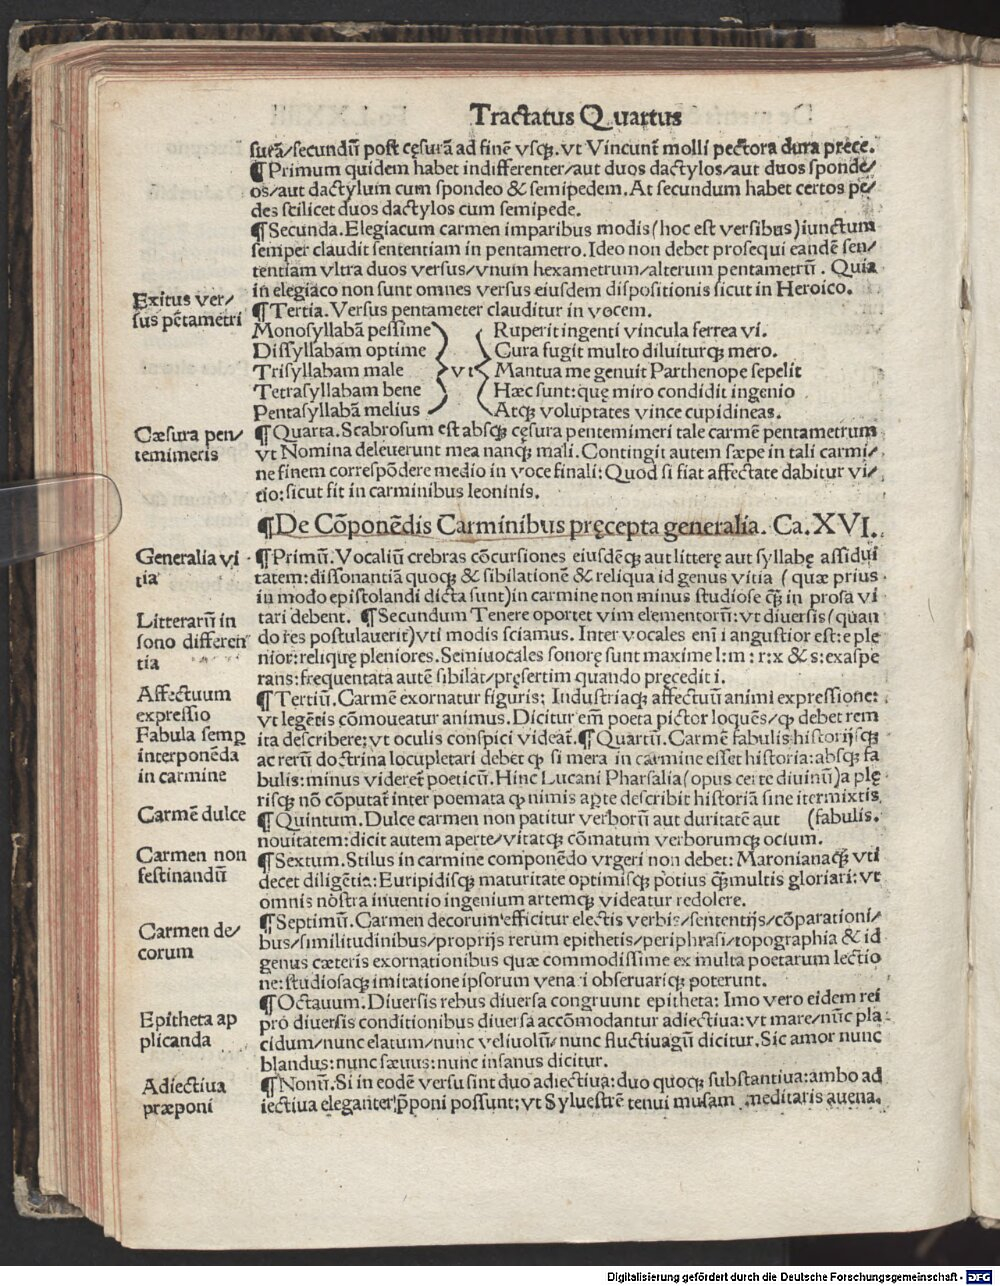 Tractatus Quartus
surā/secundū post cęsurā ad finē vsqꝫ. vt Vincunt molli pectora dura prece.
¶Primum quidem habet indifferenter/aut duos dactylos/aut duos sponde/
os/aut dactylum cum spondeo & semipedem. At secundum habet certos pe/
des scilicet duos dactylos cum semipede.
¶Secunda. Elegiacum carmen imparibus modis (hoc est versibus) iunctum
semper claudit sententiam in pentametro. Ideo non debet prosequi eandē sen/
tentiam vltra duos versus/vnum hexametrum/alterum pentametrū. Quia
in elegiaco non sunt omnes versus eiusdem dispositionis sicut in Heroico.
Exitus ver/
sus pētametri
¶Tertia. Versus pentameter clauditur in vocem.
Monosyllabā pessime Ruperit ingenti vincula ferrea vi.
Dissyllabam optime Cura fugit multo diluiturqꝫ mero.
Trisyllabam male vt Mantua me genuit Parthenope sepelit
Tetrasyllabam bene Hæc sunt: quę miro condidit ingenio
Pentasyllabā melius Atqꝫ voluptates vince cupidineas.
Cæsura pen/
temimeris
¶Quarta. Scabrosum est absqꝫ cęsura pentemimeri tale carmē pentametrum
vt Nomina deleuerunt mea nanqꝫ mali. Contingit autem sæpe in tali carmi/
ne finem correspōdere medio in voce finali: Quod si fiat affectate dabitur vi/
tio: sicut fit in carminibus leoninis.
¶De Cōponēdis Carminibus pręcepta generalia. Ca. XVI.
Generalia vi
tia
¶Primū. Vocaliū crebras cōcursiones eiusdēqꝫ aut litterę aut syllabę assidui
tatem: dissonantiā quoqꝫ & sibilationē & reliqua id genus vitia (quæ prius
in modo epistolandi dicta sunt) in carmine non minus studiose qꝫ̄ in prosa vi
tari debent. ¶Secundum Tenere oportet vim elementorū: vt diuersis (quan
do res postulauerit) vti modis sciamus. Inter vocales enī i angustior est: e ple
nior: reliquę pleniores. Semiuocales sonorę sunt maxime l: m: r: x & s: exaspe
rans: frequentata autē sibilat/pręsertim quando pręcedit i.
Litterarū in
sono differen
tia
Affectuum
expressio
¶Tertiū. Carmē exornatur figuris: Industriaqꝫ affectuū animi expressione:
vt legētis cōmoueatur animus. Dicitur em̄ poeta pictor loquēs/ꝙ debet rem
ita describere: vt oculis conspici videat̄. ¶Quartū. Carmē fabulis historijsqꝫ
ac rerū doctrina locupletari debet ꝙ si mera in carmine esset historia: absqꝫ fa
bulis: minus videret̄ poeticū. Hinc Lucani Pharsalia (opus certe diuinū) a plę
risqꝫ nō cōputat̄ inter poemata ꝙ nimis aꝑte describit historiā sine itermixtis
(fabulis.
Fabula semꝑ
interponēda
in carmine
Carmē dulce
¶Quintum. Dulce carmen non patitur verborū aut duritatē aut
nouitatem: dicit autem aperte/vitatqꝫ cōmatum verborumqꝫ ocium.
Carmen non
festinandū
¶Sextum. Stilus in carmine componēdo vrgeri non debet: Maronianaqꝫ vti
decet diligētia: Euripidisqꝫ maturitate optimisqꝫ potius qꝫ̄ multis gloriari: vt
omnis nostra inuentio ingenium artemqꝫ videatur redolere.
Carmen de/
corum
¶Septimū. Carmen decorum efficitur electis verbis/sententijs/cōparationi/
bus/similitudinibus/proprijs rerum epithetis/periphrasi/topographia & id
genus cæteris exornationibus quæ commodissime ex multa poetarum lectio
ne: studiosaqꝫ imitatione ipsorum venari obseruariqꝫ poterunt.
Epitheta ap
plicanda
¶Octauum. Diuersis rebus diuersa congruunt epitheta: Imo vero eidem rei
pro diuersis conditionibus diuersa accōmodantur adiectiua: vt mare/nūc pla
cidum/nunc elatum/nunc veliuolū/nunc fluctiuagū dicitur. Sic amor nunc
blandus: nunc sæuus: nunc insanus dicitur.
Adiectiua
præponi
¶Nonū. Si in eodē versu sint duo adiectiua: duo quoqꝫ substantiua: ambo ad
iectiua eleganter p̄poni possunt: vt Syluestrē tenui musam meditaris auena.
Digitalisierung gefördert durch die Deutsche Forschungsgemeinschaft - DFG